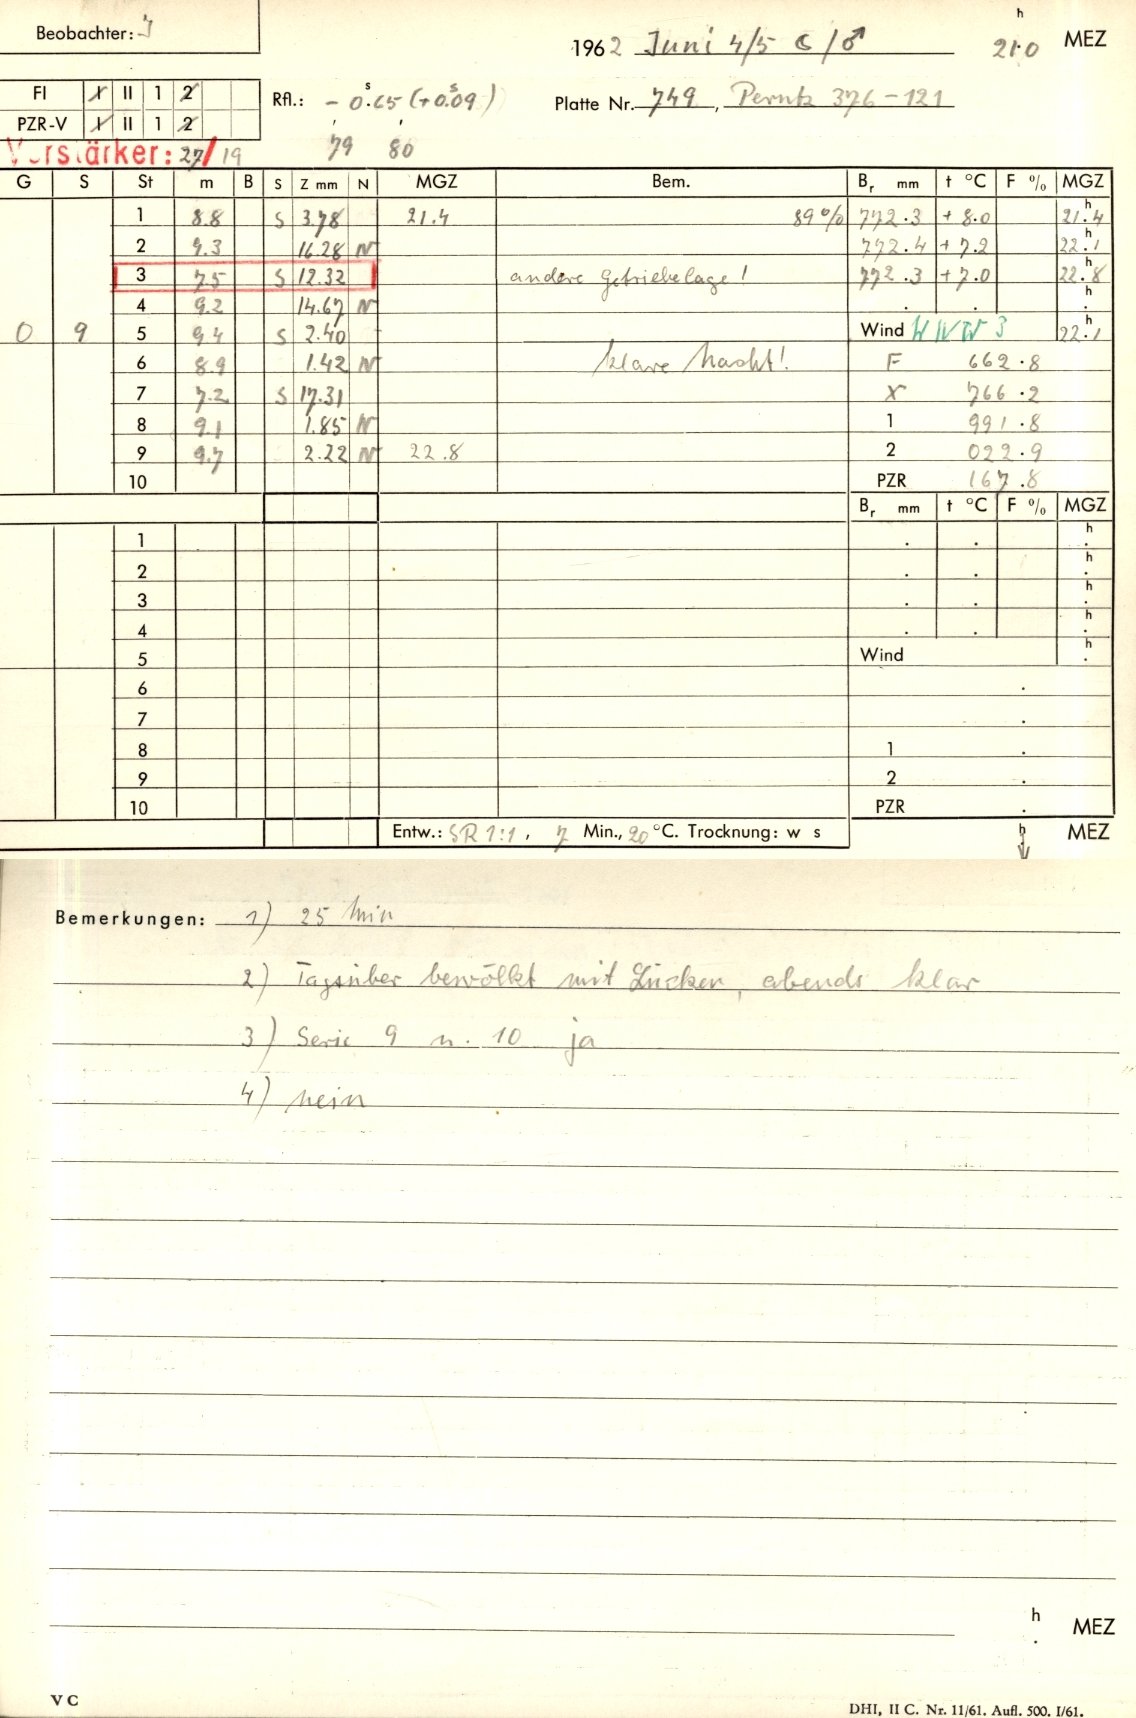 Beobachter: J
1962 Juni 4/5 ☾/♂ 21.0 h MEZ
FI I II 1 2
PZR-V I II 1 2
Rfl.: - 0.65 s (+0.09 s)
Platte Nr. 749, Perutz 376-121
Verstärker: 27/19 79 80
G S St m B S Z mm N MGZ Bem. Br mm t °C F % MGZ
1 8.8 S 3.78 21.4 89% 772.3 +8.0 21.4 h
2 9.3 16.28 N 772.4 +7.2 22.1 h
3 7.5 S 12.32 andere Getriebelage! 772.3 +7.0 22.8 h
4 9.2 14.67 N . . h
0 9 5 9.4 S 2.40 Wind WNW 3 22.1 h
6 8.9 1.42 N klare Nacht! F 662.8
7 7.2 S 17.31 X 766.2
8 9.1 1.85 N 1 991.8
9 9.7 2.22 N 22.8 2 022.9
10 PZR 167.8
Br mm t °C F % MGZ
1 . . h
2 . . h
3 . . h
4 . . h
5 Wind h
6 .
7 .
8 1 .
9 2 .
10 PZR .
Entw.: SR 1:1, 7 Min., 20 °C. Trocknung: w s h MEZ
Bemerkungen: 1) 25 Min
2) Tagsüber bewölkt mit Lücken, abends klar
3) Serie 9 u. 10 ja
4) nein
h MEZ
V C
DHI, II C. Nr. 11/61. Aufl. 500. I/61.